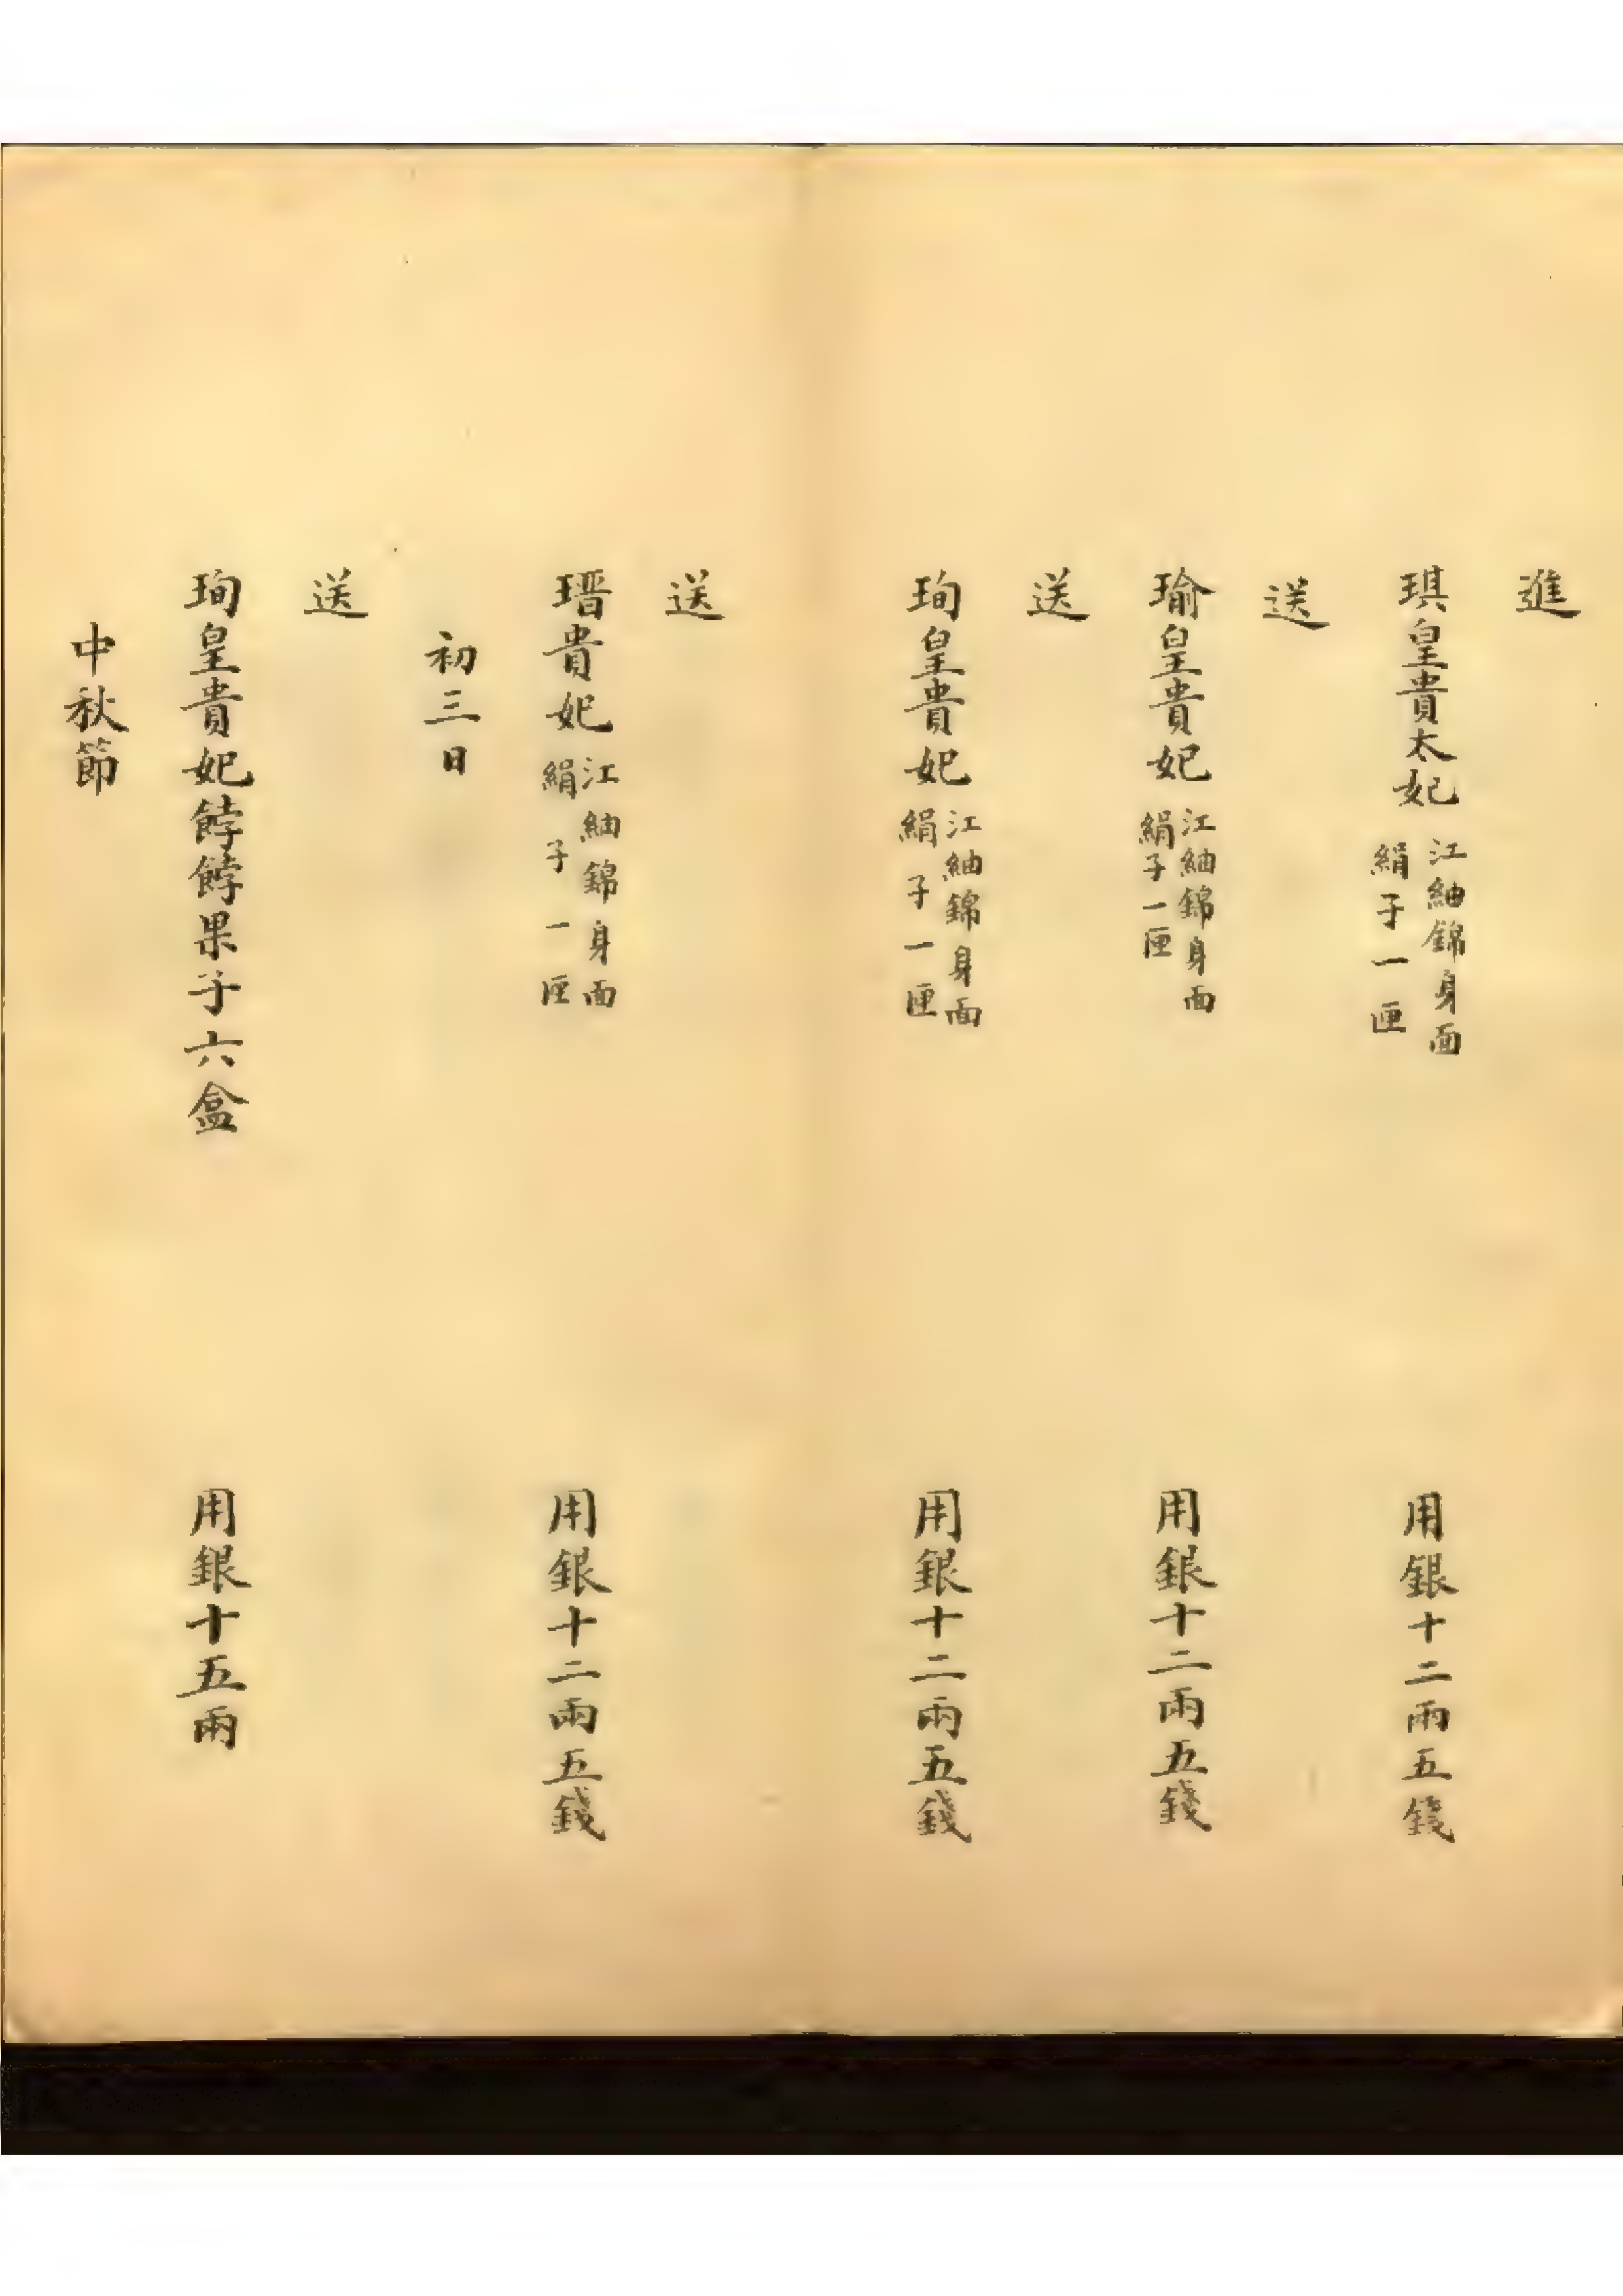 進
琪皇貴太妃 江紬錦身面 絹子一匣 用銀十二兩五錢
送
瑜皇貴妃 江紬錦身面 絹子一匣 用銀十二兩五錢
送
珣皇貴妃 江紬錦身面 絹子一匣 用銀十二兩五錢
送
瑨貴妃 江紬錦身面 絹子一匣 用銀十二兩五錢
初三日
送
珣皇貴妃餑餑果子六盒 用銀十五兩
中秋節